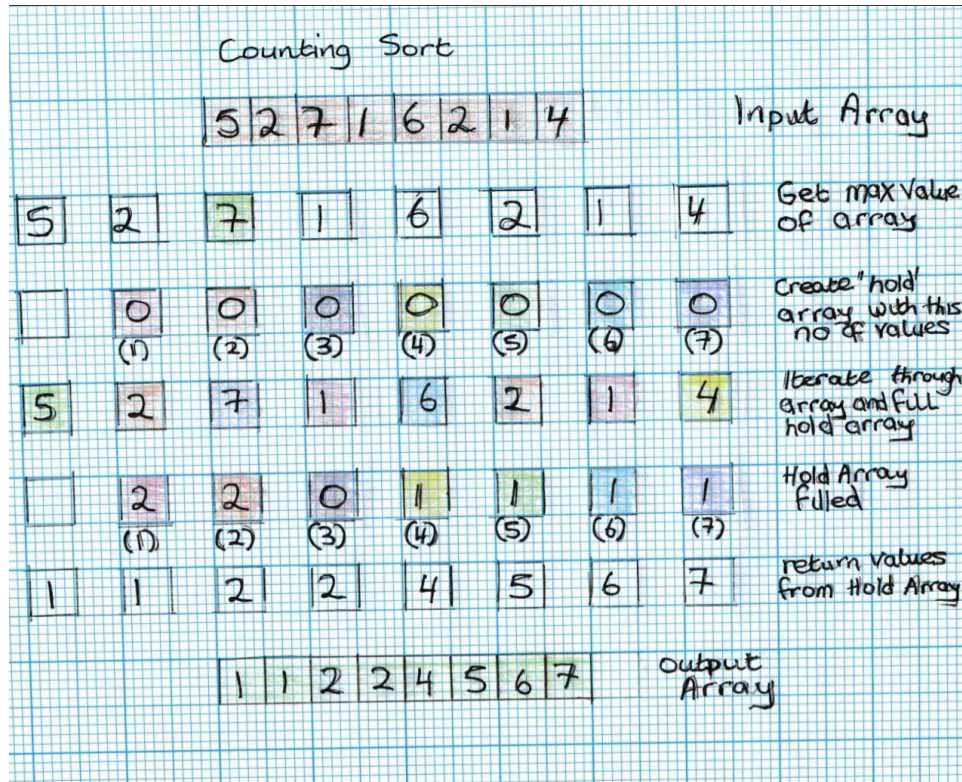 Counting Sort
5 2 7 1 6 2 1 4 Input Array
5 2 7 1 6 2 1 4 Get max value
of array
0 0 0 0 0 0 0 Create "hold'
array with this
no of values
(1) (2) (3) (4) (5) (6) (7)
5 2 7 1 6 2 1 4 Iterate through
array and fill
hold array
2 2 0 1 1 1 1 Hold Array
filled
(1) (2) (3) (4) (5) (6) (7)
1 1 2 2 4 5 6 7 return values
from Hold Array
1 1 2 2 4 5 6 7 output
Array